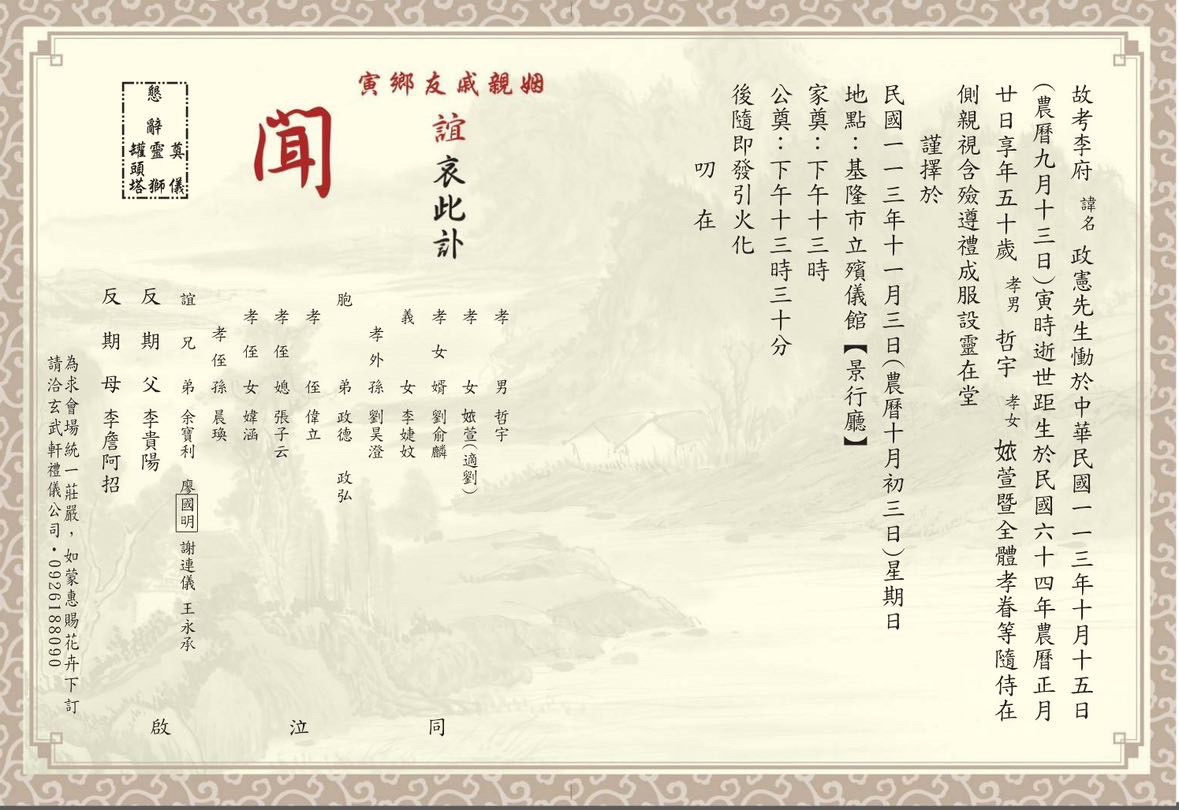 故考李府 諱名 政憲先生慟於中華民國一一三年十月十五日
（農曆九月十三日）寅時逝世距生於民國六十四年農曆正月
廿日享年五十歲 孝男 哲宇 孝女 娰萱暨全體孝眷等隨侍在
側親視含殮遵禮成服設靈在堂
謹擇於
民國一一三年十一月三日（農曆十月初三日）星期日
地點：基隆市立殯儀館【景行廳】
家奠：下午十三時
公奠：下午十三時三十分
後隨即發引火化
叨 在
寅鄉友戚親姻
誼哀此訃
聞
懇辭 奠儀 靈獅 罐頭塔
孝男 哲宇
孝女 娰萱（適劉）
孝女婿 劉俞麟
義女 李婕妏
孝外孫 劉昊澄
胞弟 政德 政弘
孝侄 偉立
孝侄媳 張子云
孝侄女 媁涵
孝侄孫 晨瑛
誼兄弟 余寶利 廖國明 謝連儀 王永承
反期父 李貴陽
反期母 李詹阿招
同 泣 啟
為求會場統一莊嚴，如蒙惠賜花卉下訂
請洽玄武軒禮儀公司・0926188090